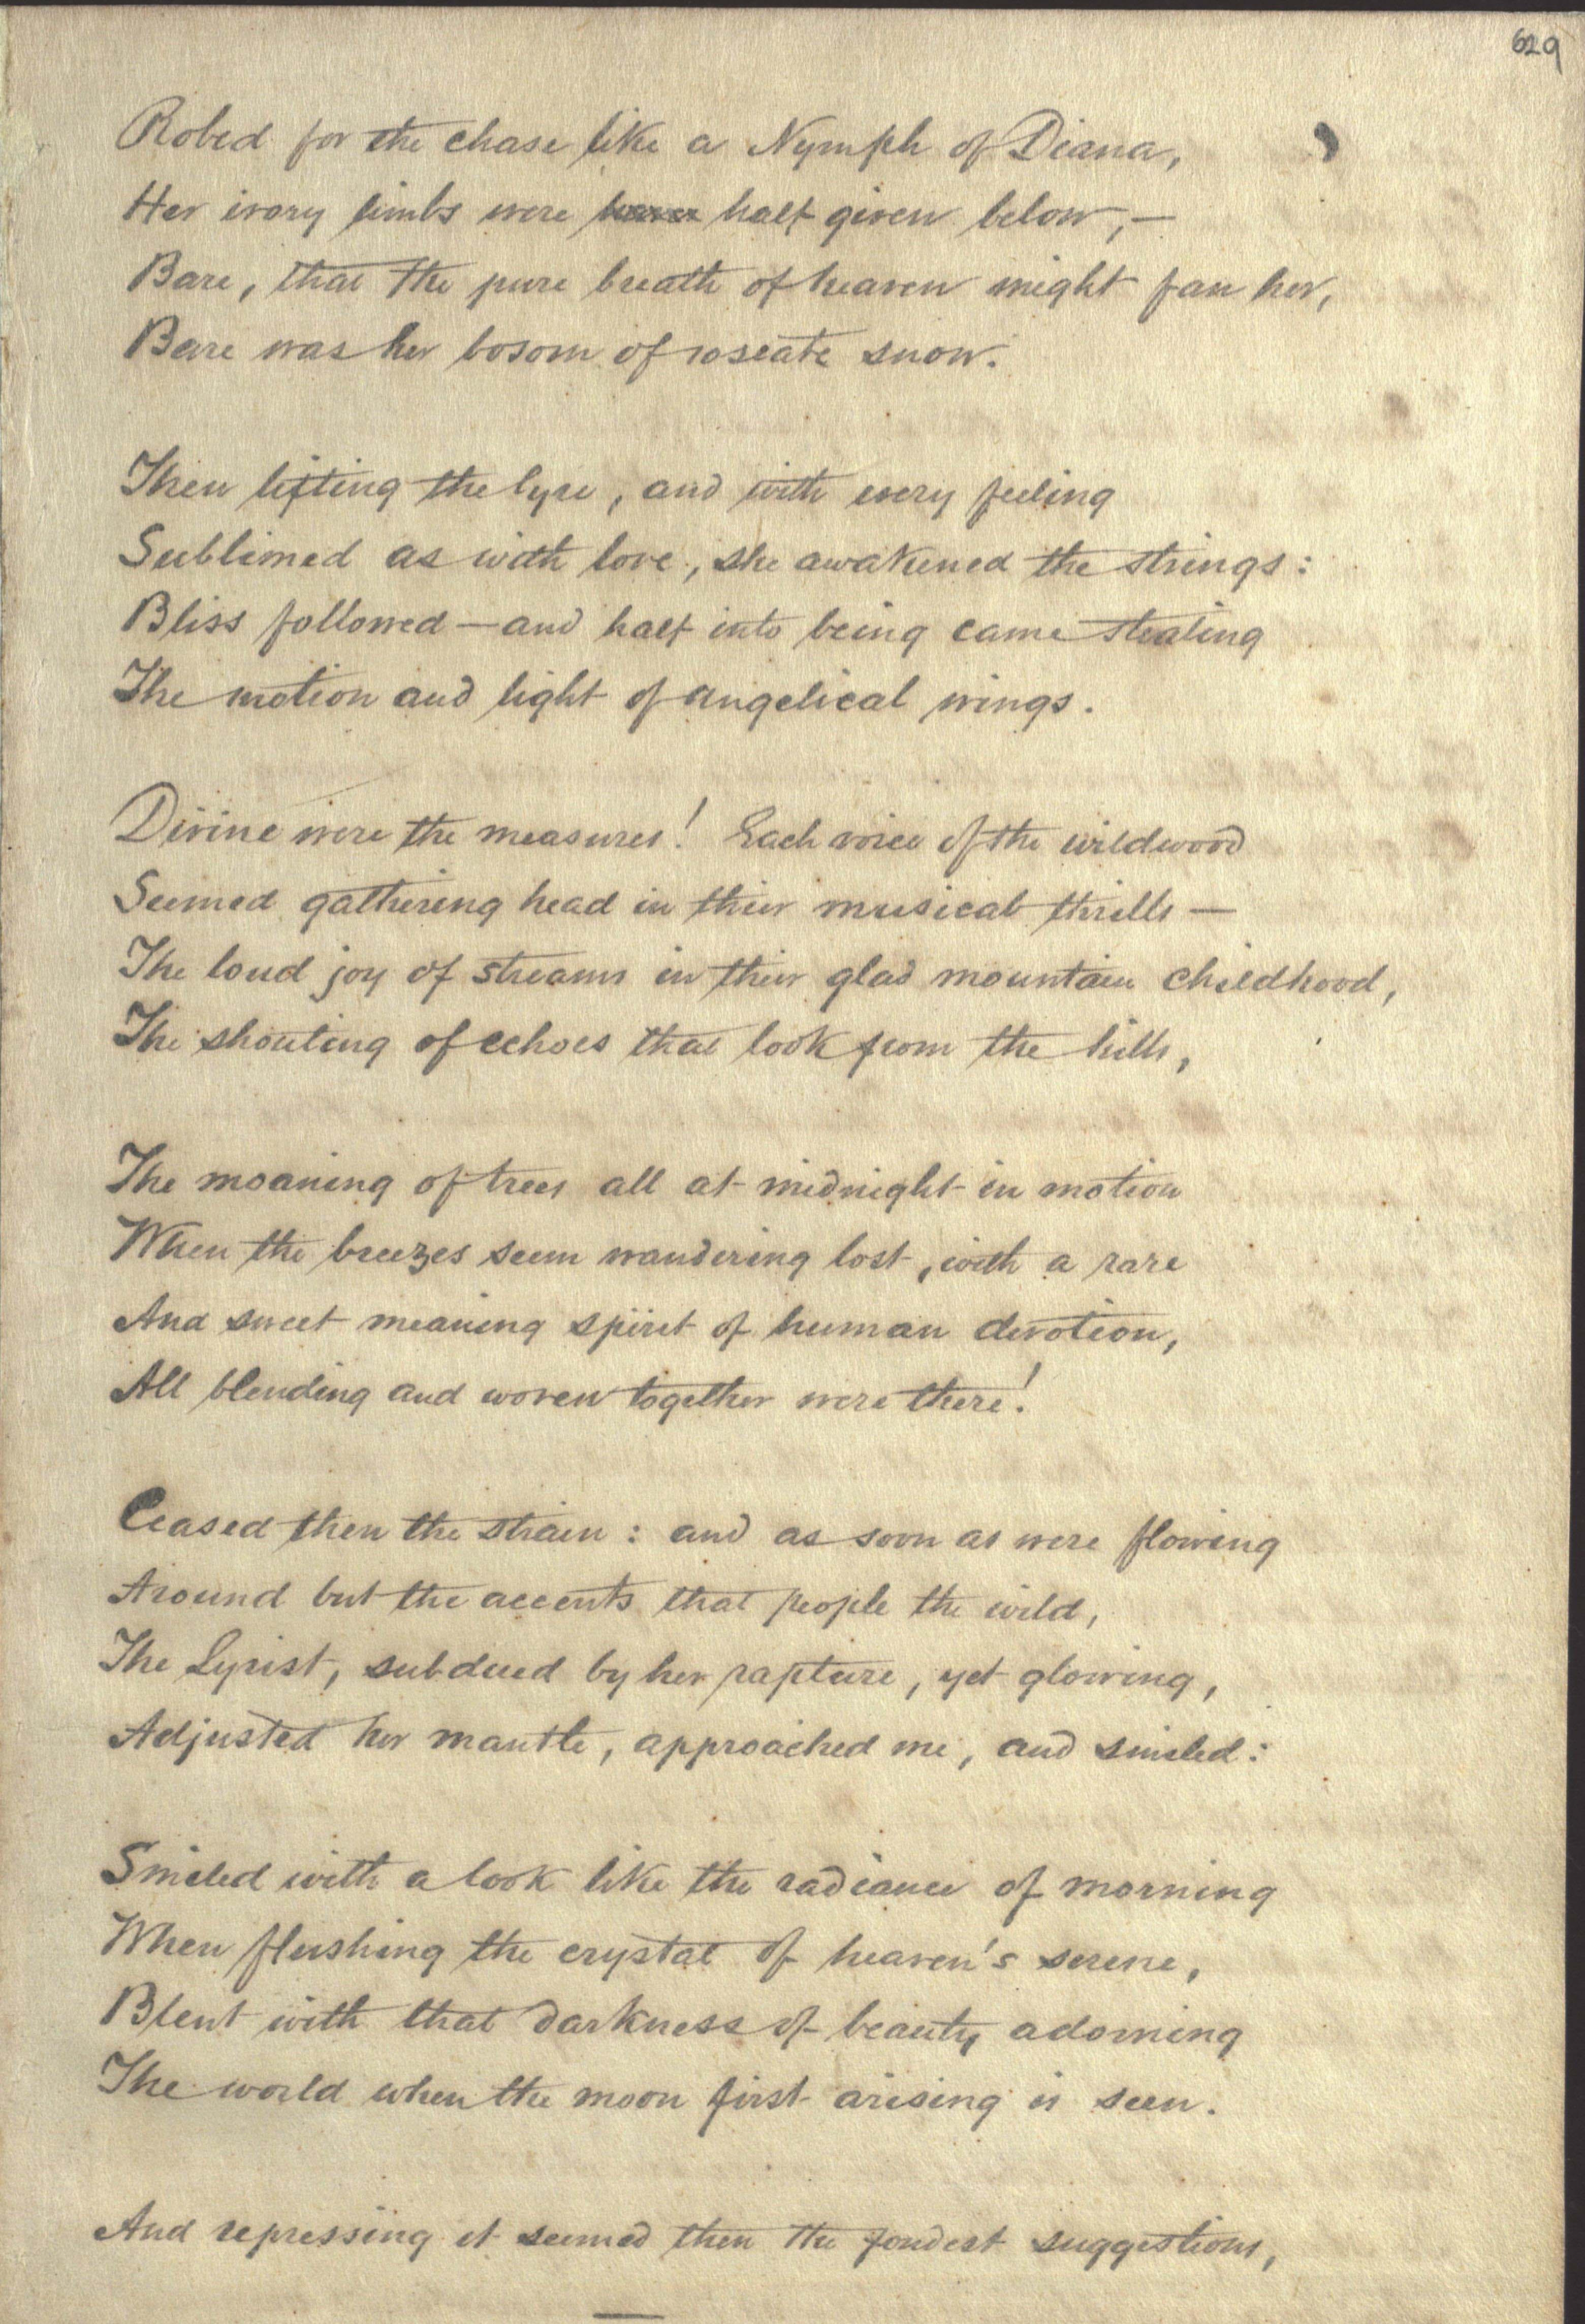 629
Robed for the chase like a Nymph of Diana,
Her ivory limbs were half given below,—
Bare, that the pure breath of heaven might fan her,
Bare was her bosom of roseate snow.
Then lifting the lyre, and with every feeling
Sublimed as with love, she awakened the strings:
Bliss followed—and half into being came stealing
The motion and light of angelical wings.
Divine were the measures! Each voice of the wildwood
Seemed gathering head in their musical thrills—
The loud joy of streams in their glad mountain childhood,
The shouting of echoes that look from the hills,
The moaning of trees all at midnight in motion
When the breezes seem wandering lost, with a rare
And sweet meaning spirit of human devotion,
All blending and woven together were there!
Ceased then the strain: and as soon as were flowing
Around but the accents that people the wild,
The Lyrist, subdued by her rapture, yet glowing,
Adjusted her mantle, approached me, and smiled:
Smiled with a look like the radiance of morning
When flushing the crystal of heaven's serene,
Blent with that darkness of beauty adorning
The world when the moon first arising is seen.
And repressing it seemed then the fondest suggestions,